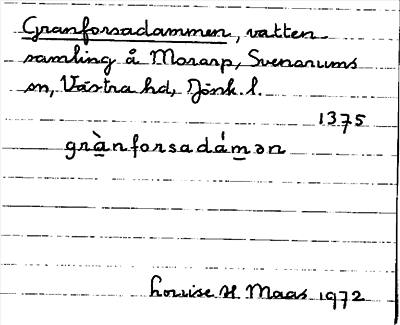 Granforsadammen, vatten-
samling å Morarp, Svenarums
sn, Västra hd, Jönk. l.
1375
grànforsadámən
Louise H Maas 1972